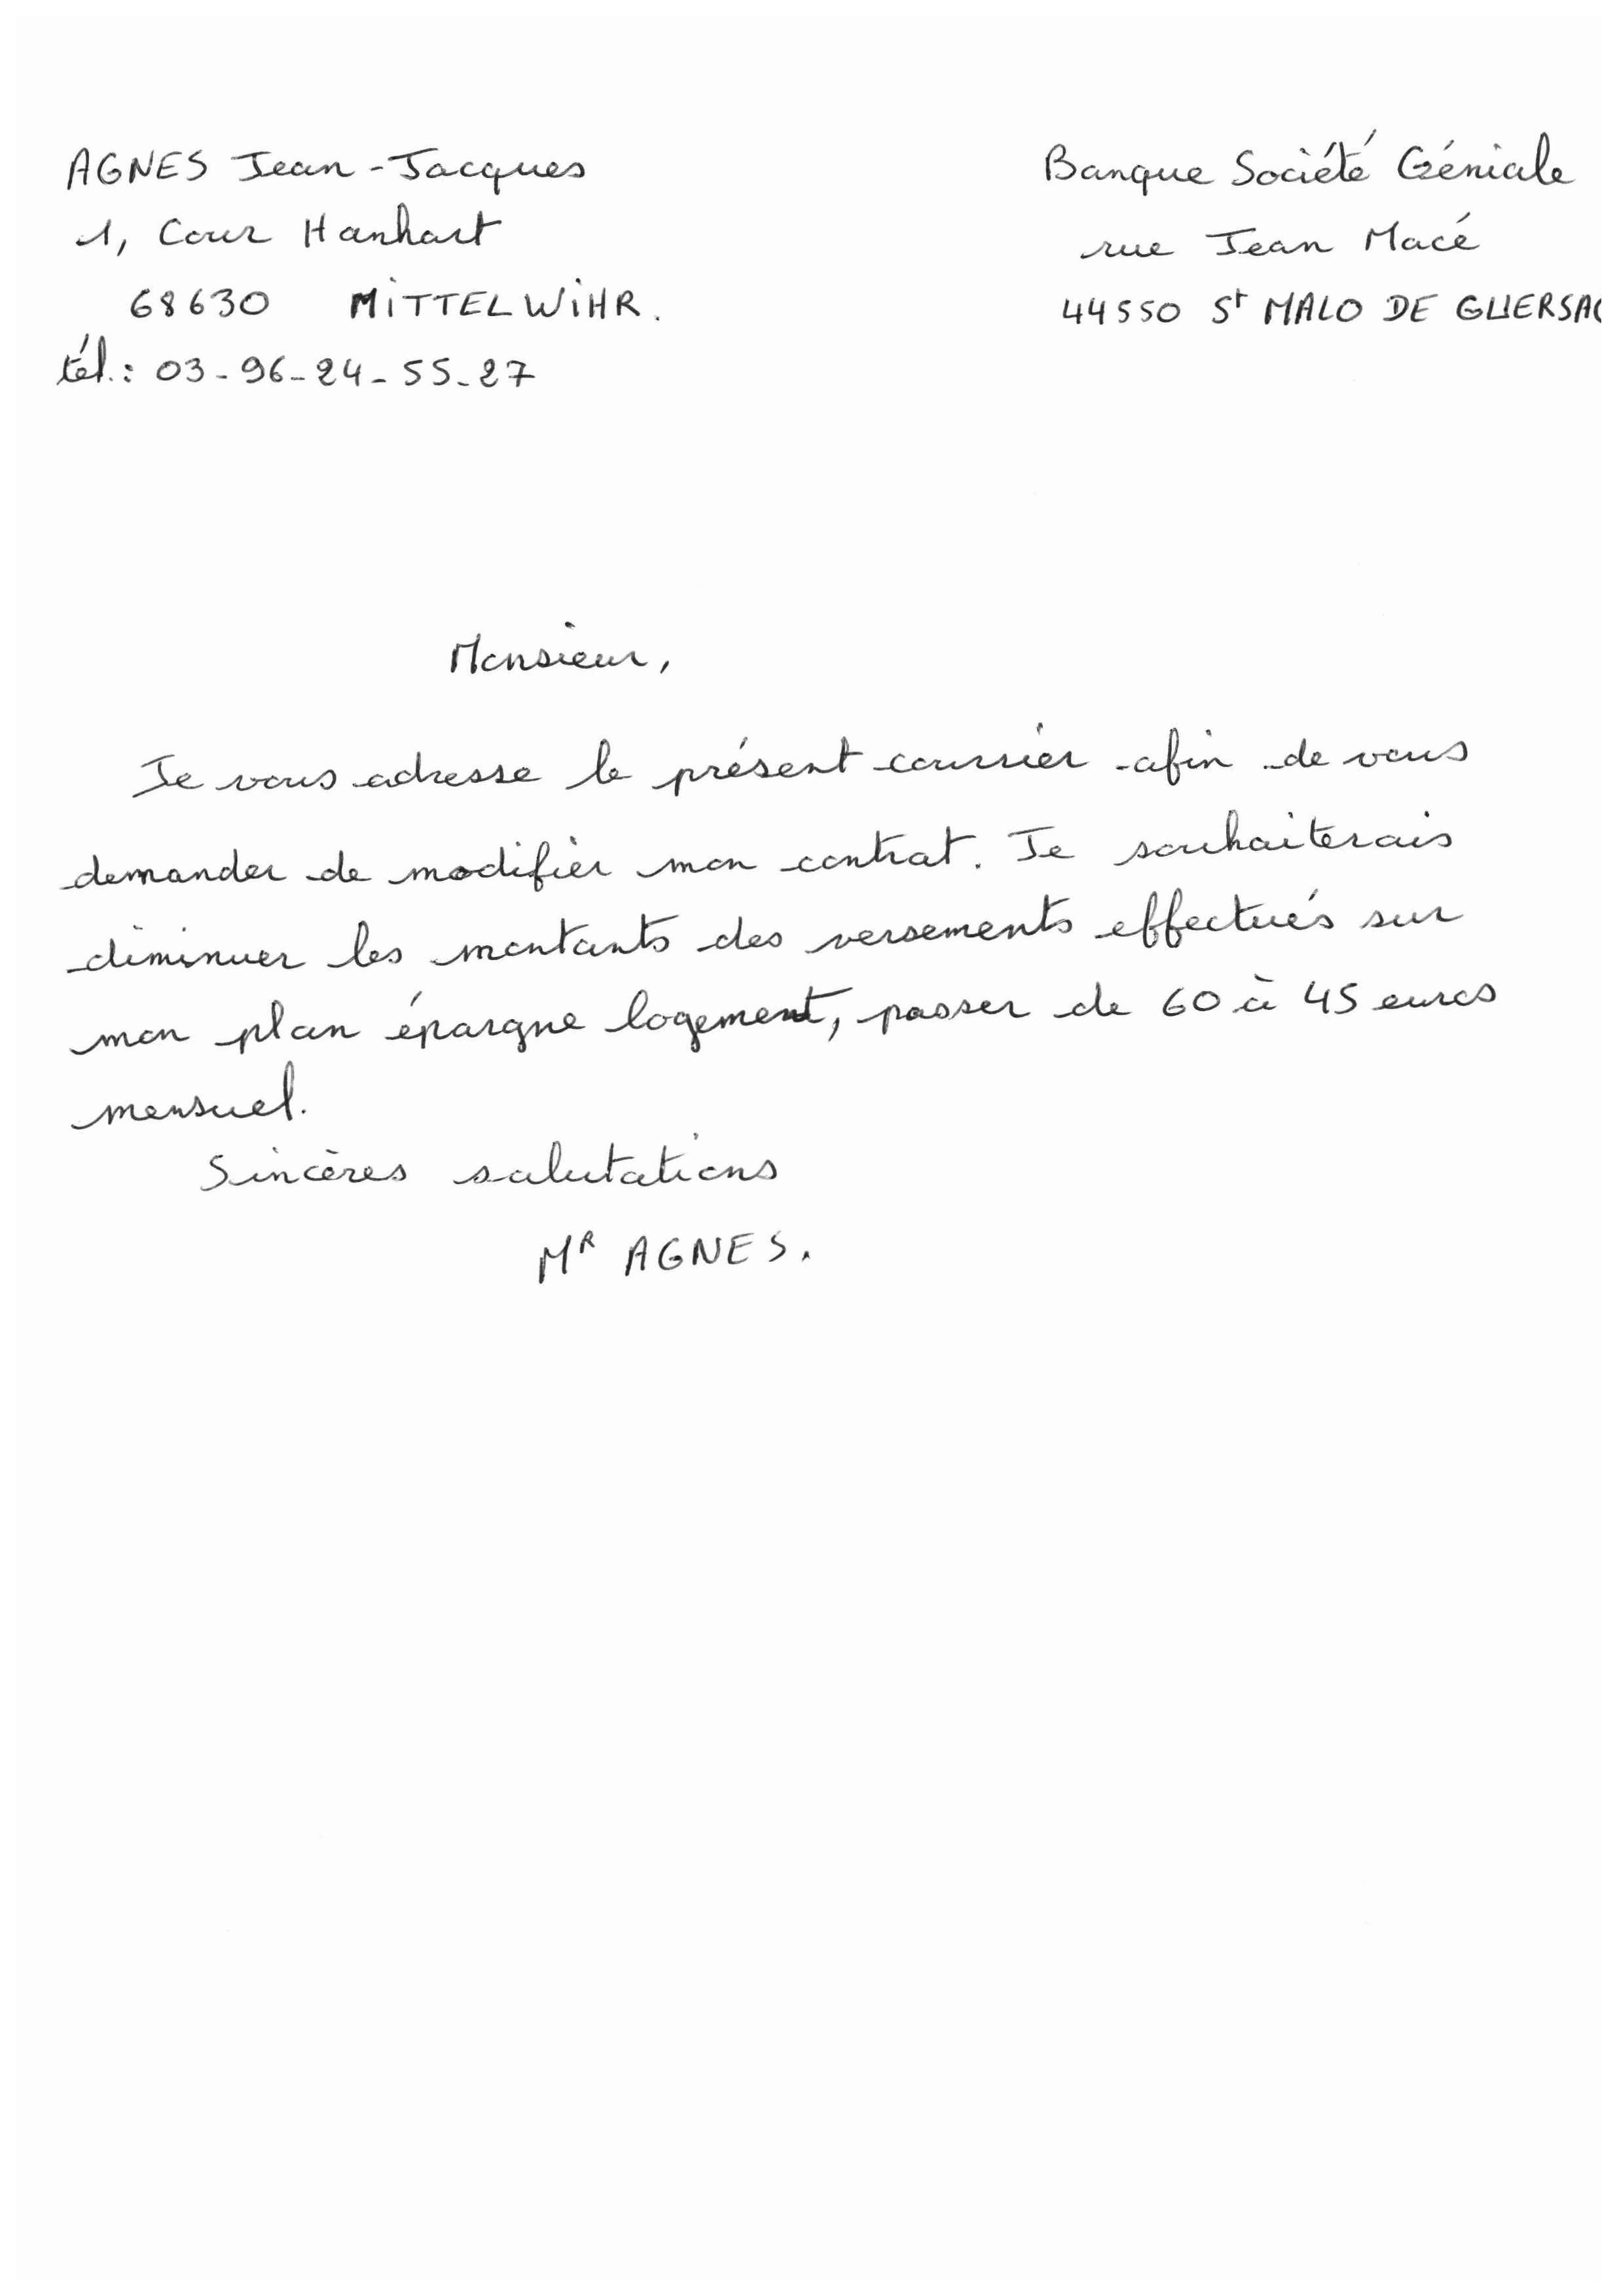 AGNES Jean-Jacques
1, Cour Hanhart
68630 MITTELWIHR.
tél.: 03-96-24-55-27
Banque Société Géniale
rue Jean Macé
44550 St MALO DE GUERSAC
Monsieur,
Je vous adresse le présent courrier afin de vous
demander de modifier mon contrat. Je souhaiterais
diminuer les montants des versements effectués sur
mon plan épargne logement, passer de 60 à 45 euros
mensuel.
Sincères salutations
MR AGNES.